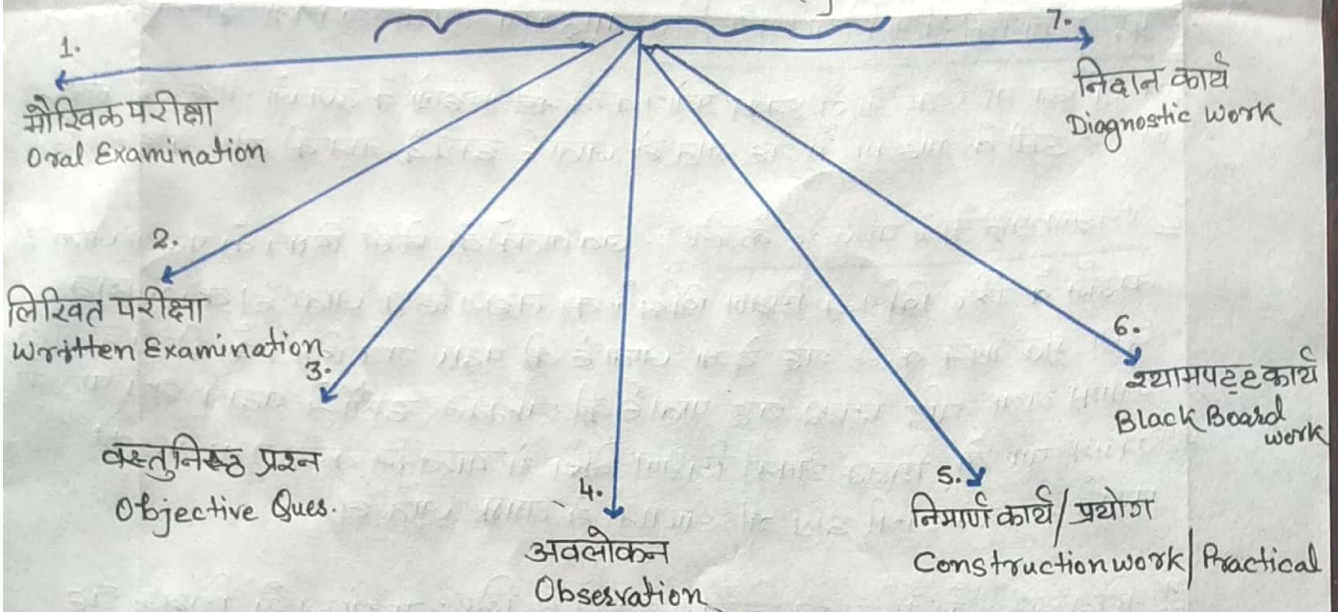 1.
मौखिक परीक्षा
Oral Examination
2.
लिखित परीक्षा
Written Examination
3.
वस्तुनिष्ठ प्रश्न
Objective Ques.
4.
अवलोकन
Observation
5.
निमार्ण कार्य/ प्रयोग
Construction work/ Practical
6.
श्यामपट्ट कार्य
Black Board
work
7.
निदान कार्य
Diagnostic Work